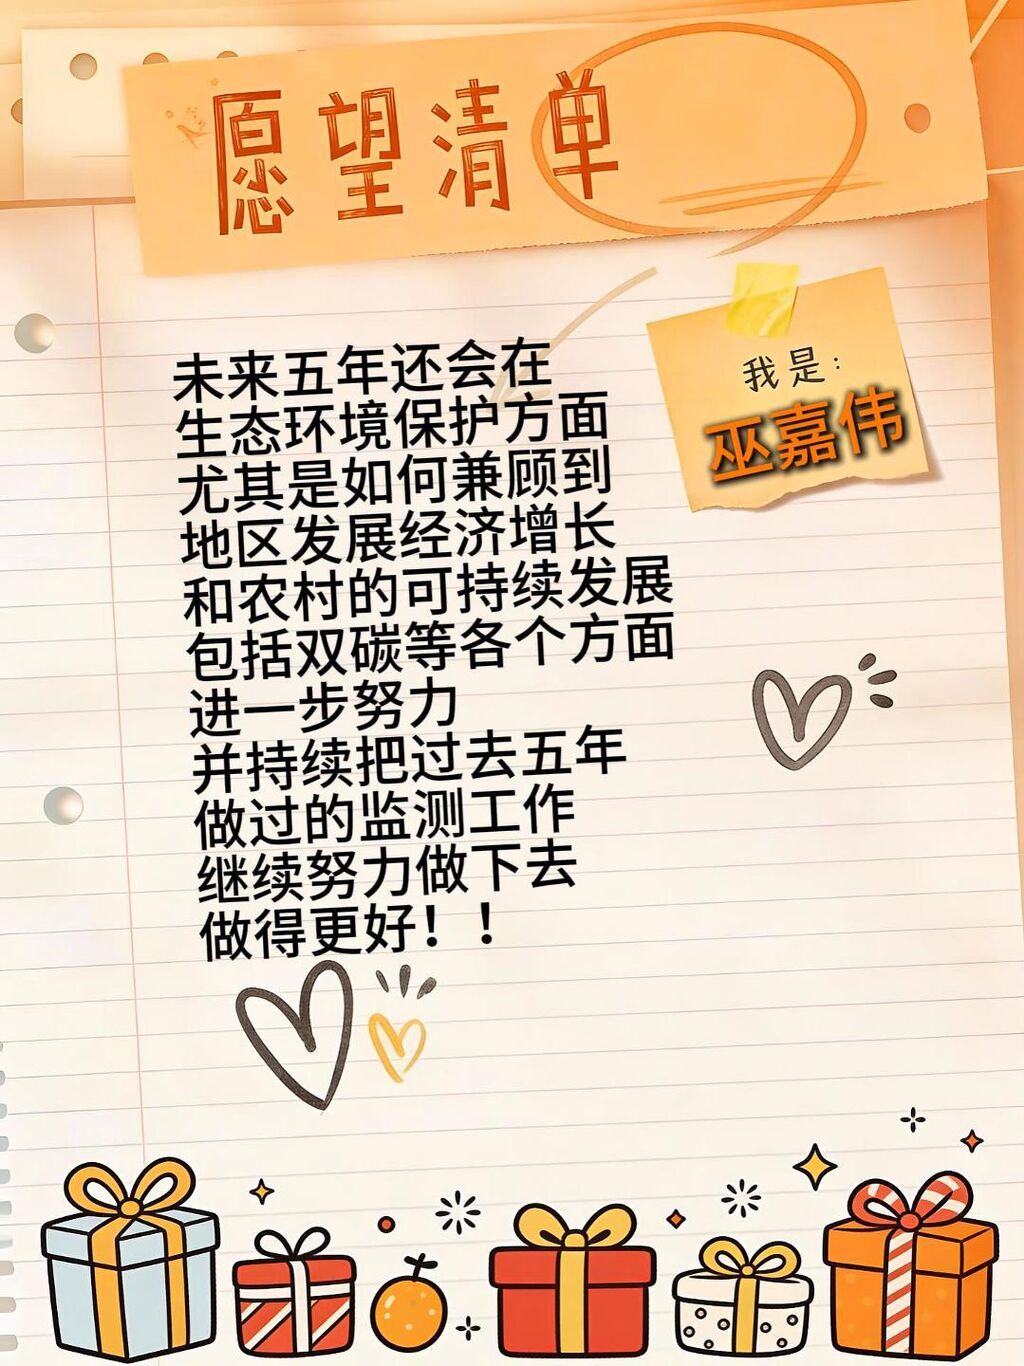 愿望清单
我是：
巫嘉伟
未来五年还会在
生态环境保护方面
尤其是如何兼顾到
地区发展经济增长
和农村的可持续发展
包括双碳等各个方面
进一步努力
并持续把过去五年
做过的监测工作
继续努力做下去
做得更好！！